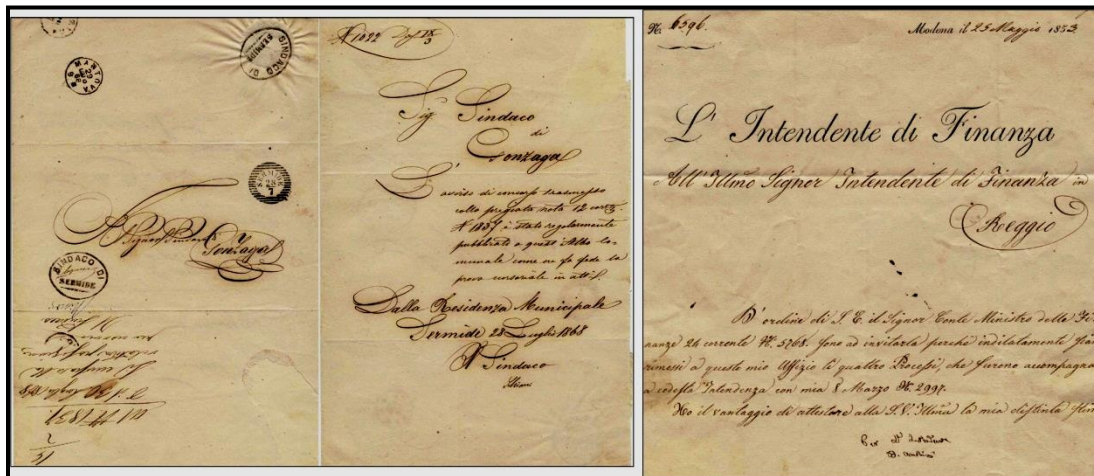 SINDACO DI
SERMIDE
MANTOVA
SERMIDE
28
7
Gonzaga
SINDACO DI
SERMIDE
N 1692
Sig Sindaco
di
Gonzaga
L'avviso di concorso trasmesso
colla pregiata nota 12 corr.
N 1837 è stato regolarmente
pubblicato a quest'Albo Co-
munale come ne fa fede la
prova cursoriale in atti.
Dalla Residenza Municipale
Sermide 28 Luglio 1868
Il Sindaco
N. 6596.
Modena il 25 Maggio 1853
L' Intendente di Finanza
All' Illmo Signor Intendente di Finanza in
Reggio
D'ordine di S. E. il Signor Conte Ministro delle Fi-
nanze 24 corrente N. 5768. sono ad invitarla perchè indilatamente sian
rimessi a questo mio Uffizio li quattro Processi, che furono accompagna
a codesta Intendenza con mia 8 Marzo N. 2997.
Ho il vantaggio di attestare alla S.V. Illma la mia distinta stim